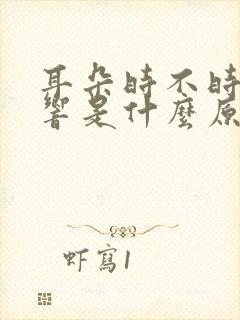 耳朵時不時
響是什麼原
虾寫1